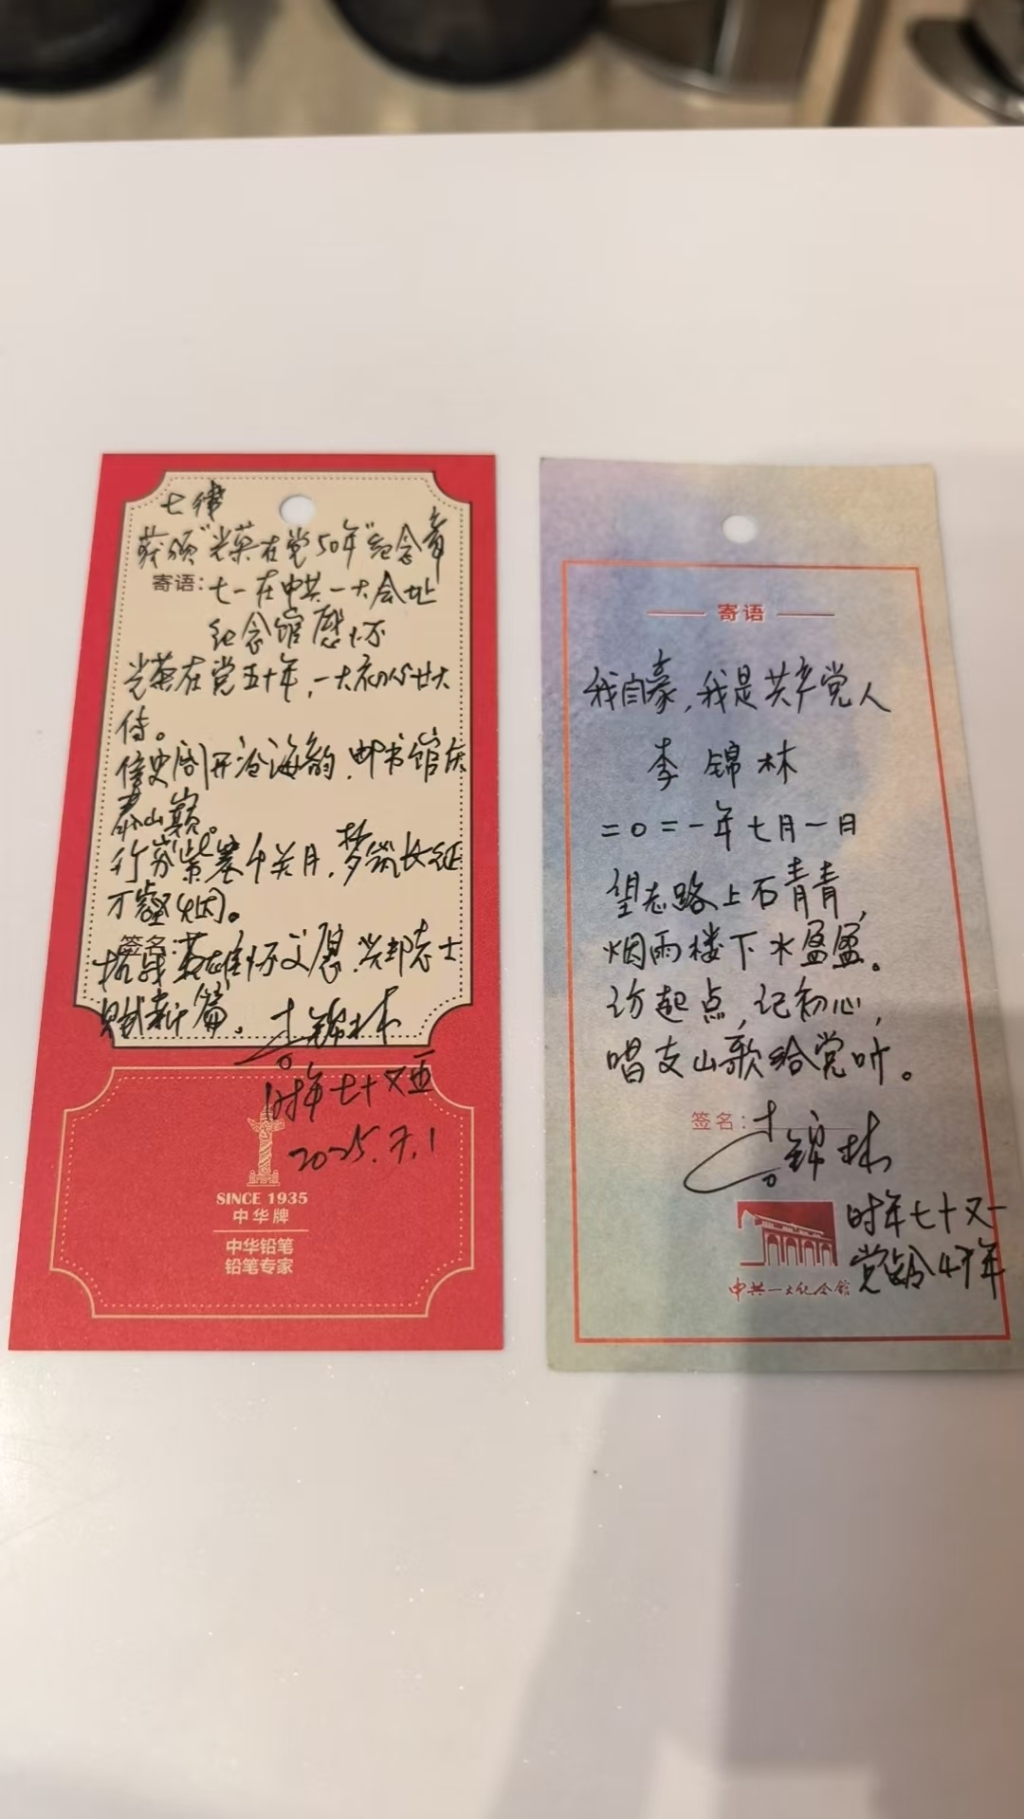 七律
获颁“光荣在党50年”纪念章
寄语：七一在中共一大会址
纪念馆感怀
光荣在党五十年，一大初心廿大
传。
信史阁开沧海韵，邮书馆庆
泰山巅。
行察紫塞千关月，梦筑长征
万壑烟。
签名：
抗战英雄怀义愿，兴邦志士
赋新篇。李锦林
时年七十又五
2025.7.1
SINCE 1935
中华牌
中华铅笔
铅笔专家
寄语
我自豪，我是共产党人
李锦林
二〇二一年七月一日
望志路上石青青，
烟雨楼下水盈盈。
访起点，记初心，
唱支山歌给党听。
签名：李锦林
时年七十又一
中共一大纪念馆
党龄47年